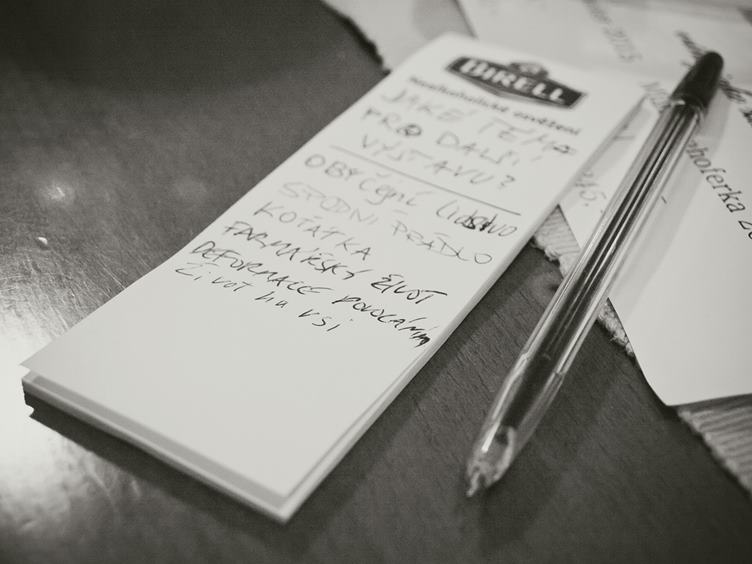 BIRELL
Nealkoholické osvěžení
JAKÉ TÉMA
PRO DALŠÍ
VÝSTAVU?
OBYČejní lidstvo
SPODNÍ PRÁDLO
KOŤÁTKA
FARMÁŘSKÝ ŽIVOT
DEFORMACE POVOLÁNÍM
Život na vsi